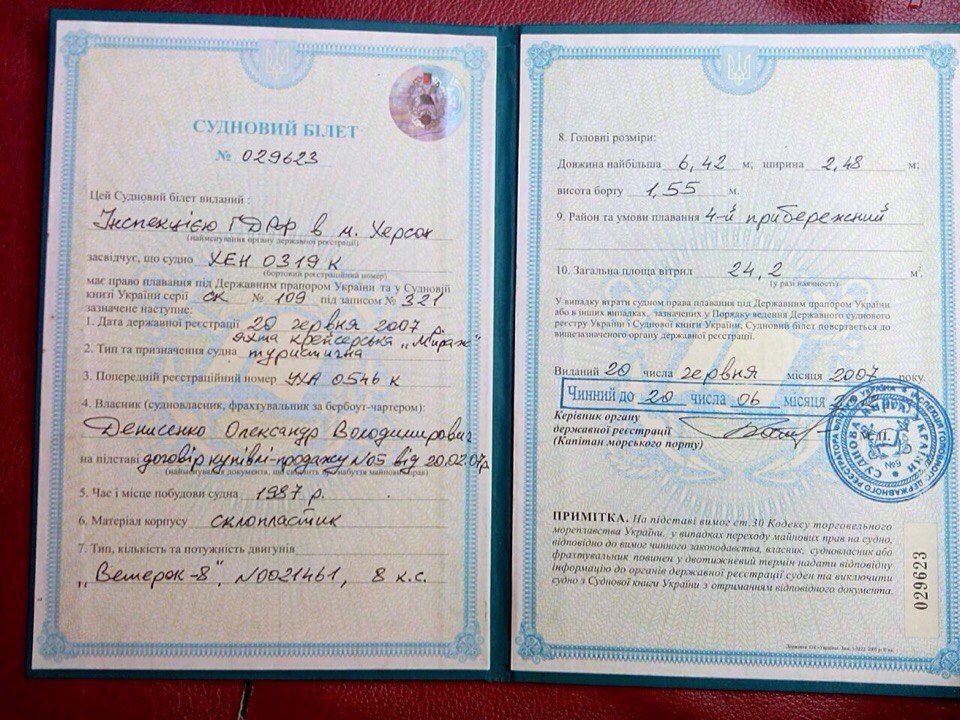 СУДНОВИЙ БІЛЕТ
№ 029623
Цей Судновий білет виданий :
Інспекцією ГДРФ в м. Херсон
(найменування органу державної реєстрації)
засвідчує, що судно ХЕН 0319 К
(бортовий реєстраційний номер)
має право плавання під Державним прапором України та у Судновій
книзі України серії СК № 109 під записом № 321
зазначене наступне:
1. Дата державної реєстрації 20 червня 2007 р.
яхта крейсерська „Мираж"
2. Тип та призначення судна туристична
3. Попередній реєстраційний номер УХА 0546 К
4. Власник (судновласник, фрахтувальник за бербоут-чартером):
Денисенко Олександр Володимирович
на підставі договір купівлі-продажу №05 від 20.02.07р
(найменування документа, що свідчить про набуття майнових прав)
5. Час і місце побудови судна 1987 р.
6. Матеріал корпусу склопластик
7. Тип, кількість та потужність двигунів
„Ветерок-8", №0021461, 8 к.с.
8. Головні розміри:
Довжина найбільша 6,42 м; ширина 2,48 м;
висота борту 1,55 м.
9. Район та умови плавання 4-й прибережний
10. Загальна площа вітрил 24,2 м².
(у разі наявності)
У випадку втрати судном права плавання під Державним прапором України
або в інших випадках, зазначених у Порядку ведення Державного суднового
реєстру України і Суднової книги України, Судновий білет повертається до
вищезазначеного органу державної реєстрації.
Виданий 20 числа червня місяця 2007 року.
Чинний до 20 числа 06 місяця
Керівник органу
державної реєстрації
(Капітан морського порту)
М.П.
№9
ПРИМІТКА. На підставі вимог ст.30 Кодексу торговельного
мореплавства України, у випадках переходу майнових прав на судно,
відповідно до вимог чинного законодавства, власник, судновласник або
фрахтувальник повинен у двотижневий термін надати відповідну
інформацію до органів державної реєстрації суден та виключити
судно з Суднової книги України з отриманням відповідного документа.
029623